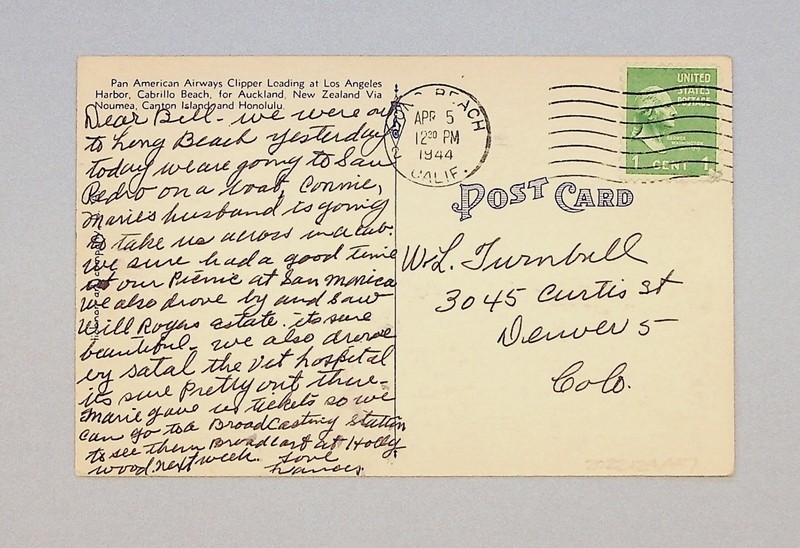 Pan American Airways Clipper Loading at Los Angeles
Harbor, Cabrillo Beach, for Auckland, New Zealand Via
Noumea, Canton Island and Honolulu.
Dear Bill - we were out
to Long Beach yesterday
today we are going to San
Pedro on a boat, Connie,
Marie's husband is going
to take us across in a cab.
we sure had a good time
at our Picnic at San Monica
we also drove by and saw
Will Rogers estate. its sure
beautiful - we also drove
by Satal the Vet hospital
its sure Pretty out there -
Marie gave us tickets so we
can go to a Broadcasting Station
to see them Broadcast at Holly
wood next week. Love
Frances
LONG BEACH
APR 5
12 30 PM
1944
CALIF.
UNITED
STATES
POSTAGE
1 CENT 1
POST CARD
W. L. Turnbull
3045 Curtis St
Denver 5
Colo.